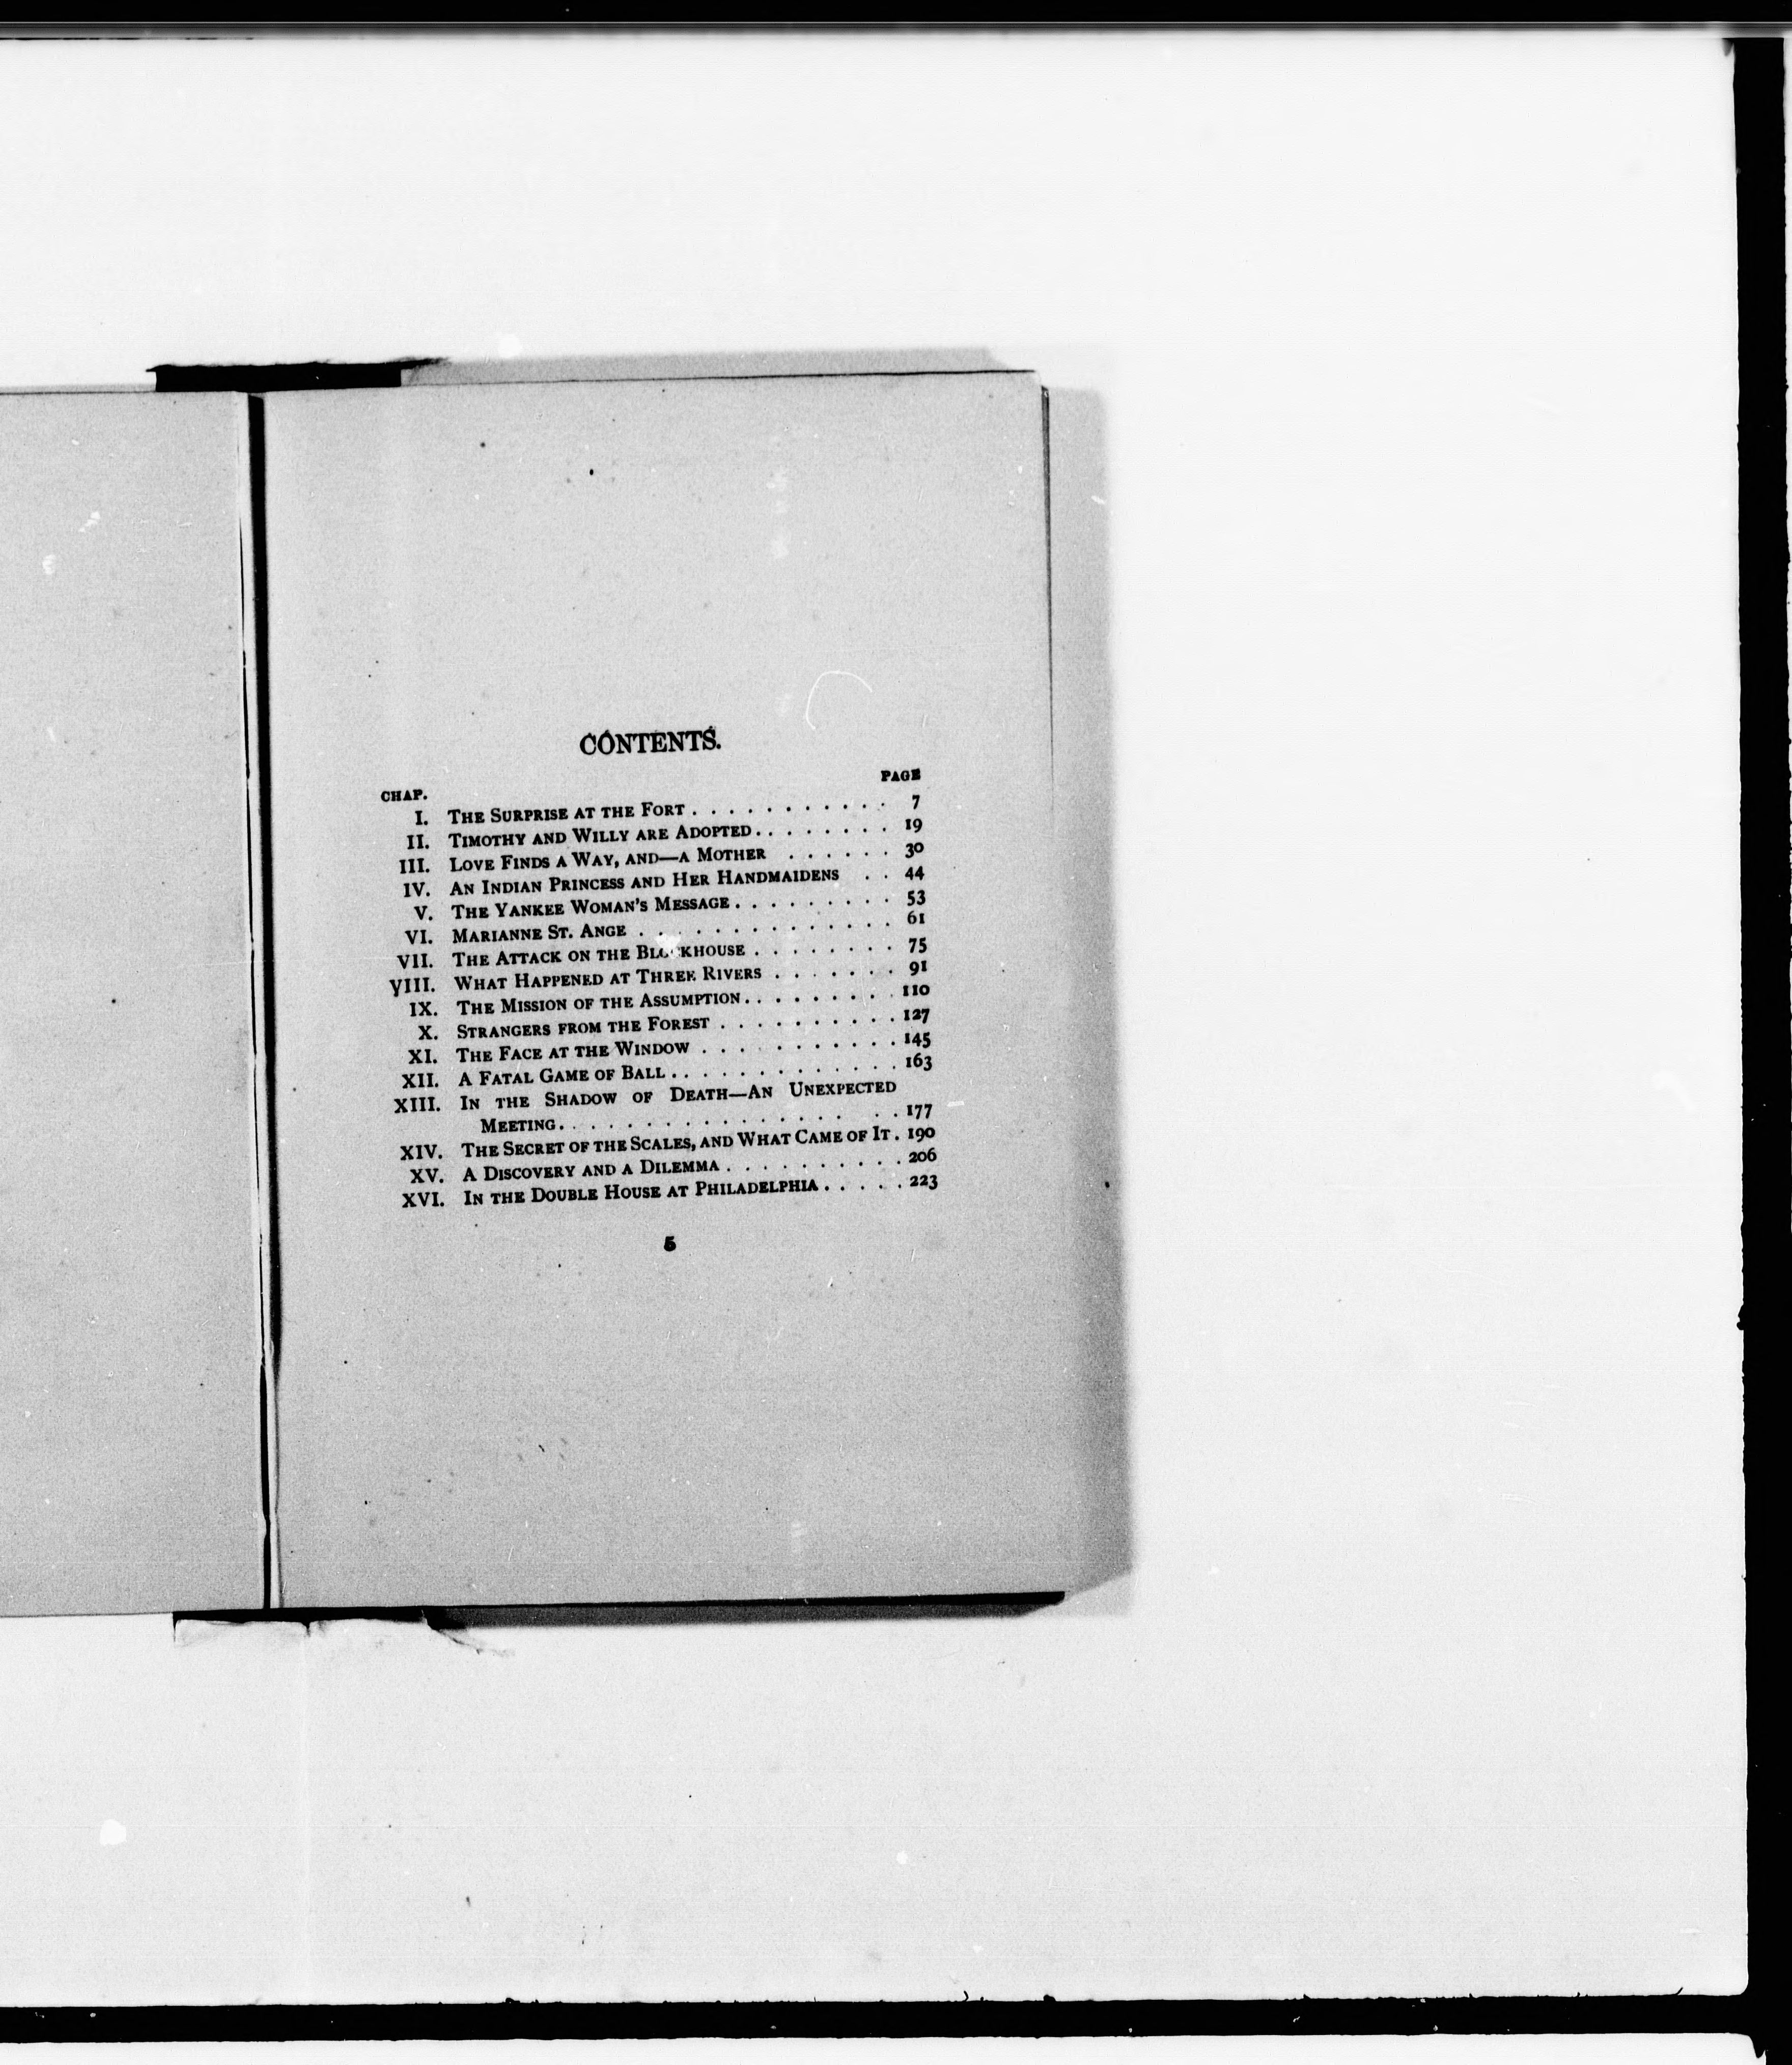 CONTENTS.
CHAP. PAGE
I. THE SURPRISE AT THE FORT . . . . . . . . . . . 7
II. TIMOTHY AND WILLY ARE ADOPTED . . . . . . . . 19
III. LOVE FINDS A WAY, AND—A MOTHER . . . . . . 30
IV. AN INDIAN PRINCESS AND HER HANDMAIDENS . . 44
V. THE YANKEE WOMAN'S MESSAGE . . . . . . . . . 53
VI. MARIANNE ST. ANGE . . . . . . . . . . . . . . 61
VII. THE ATTACK ON THE BLOCKHOUSE . . . . . . . . 75
VIII. WHAT HAPPENED AT THREE RIVERS . . . . . . . 91
IX. THE MISSION OF THE ASSUMPTION . . . . . . . . . 110
X. STRANGERS FROM THE FOREST . . . . . . . . . . 127
XI. THE FACE AT THE WINDOW . . . . . . . . . . . 145
XII. A FATAL GAME OF BALL . . . . . . . . . . . . . 163
XIII. IN THE SHADOW OF DEATH—AN UNEXPECTED
MEETING . . . . . . . . . . . . . . . . 177
XIV. THE SECRET OF THE SCALES, AND WHAT CAME OF IT . 190
XV. A DISCOVERY AND A DILEMMA . . . . . . . . . . 206
XVI. IN THE DOUBLE HOUSE AT PHILADELPHIA . . . . . 223
5